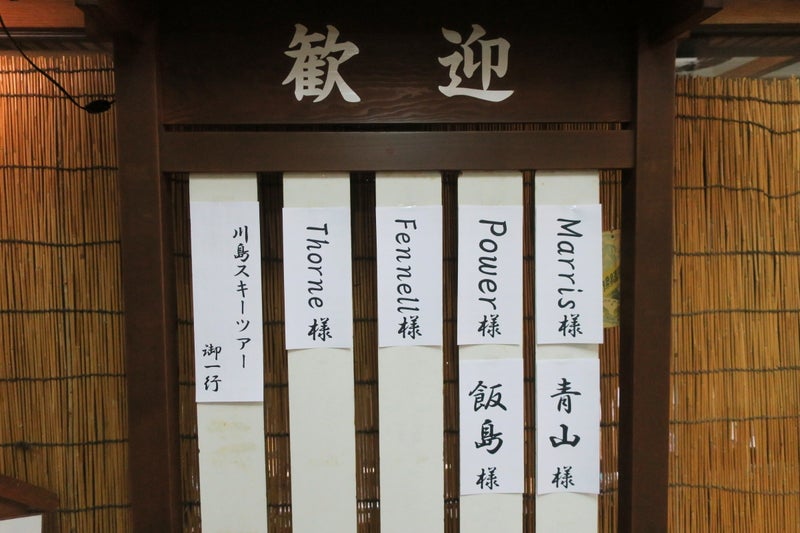 歓迎
Marris様
青山様
Power様
飯島様
Fennell様
Thorne様
川島スキーツアー
御一行